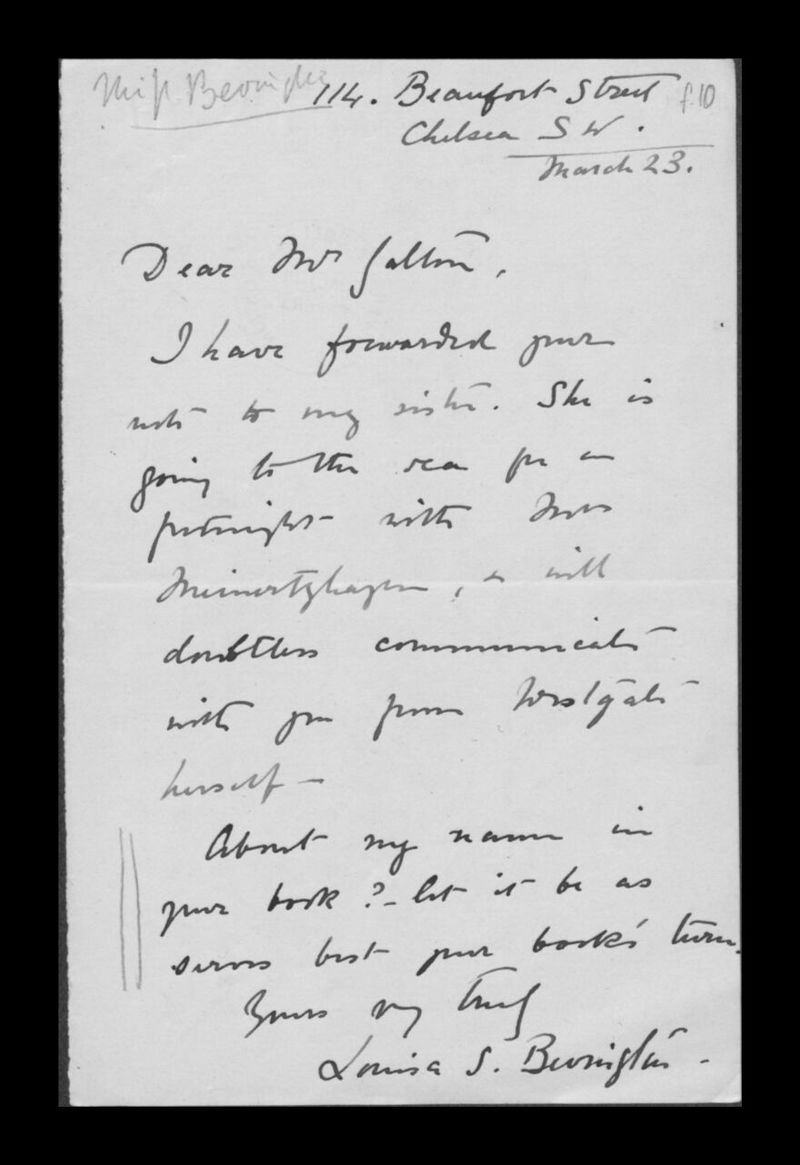 Miss Bevington
114. Beaufort Street f.10
Chelsea S W.
March 23.
Dear Mr Galton,
I have forwarded your
note to my sister. She is
going to the sea for a
fortnight with Mrs
Meinertzhagen, & will
doubtless communicate
with you from Westgate
herself —
About my name in
your book? – let it be as
serves best your book's turn.
Yours very truly
Louisa S. Bevington –